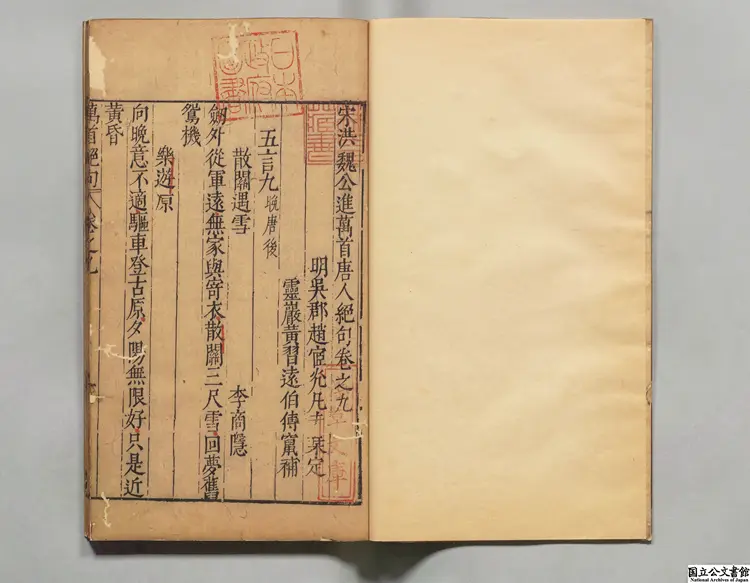 宋洪魏公進萬首唐人絕句卷之九
明吳郡趙宧光凡夫栞定
靈巖黃習遠伯傳竄補
五言九晚唐後
散關遇雪
李商隱
劔外從軍遠無家與寄衣散關三尺雪回夢舊
鴛機
樂遊原
向晚意不適驅車登古原夕陽無限好只是近
黃昏
萬首絕句 卷之九
日本
政府
圖書
国立公文書館
National Archives of Japan